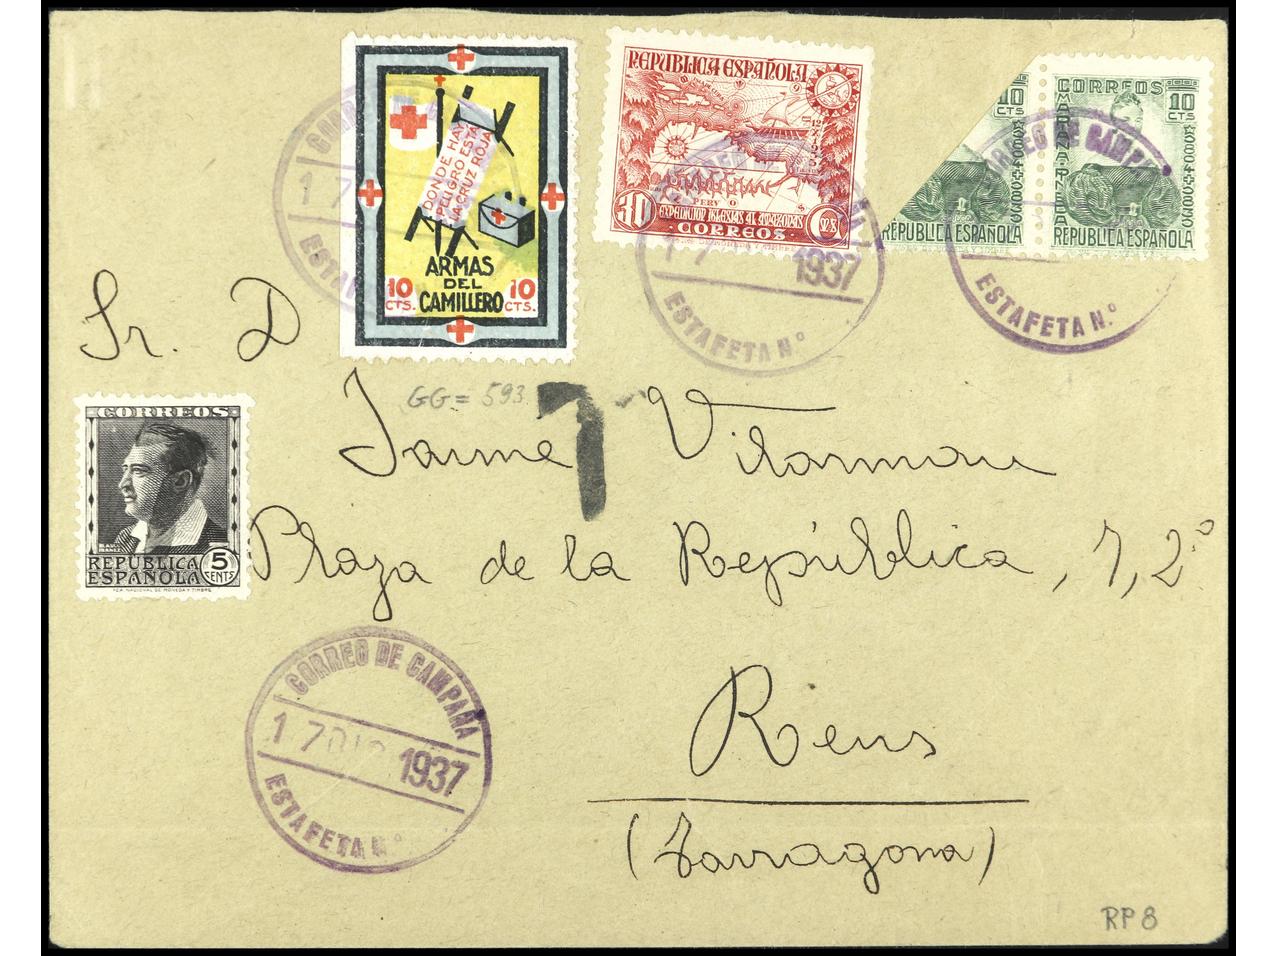 DONDE HAY
PELIGRO ESTA
LA CRUZ ROJA
ARMAS
DEL
CAMILLERO
10 CTS.
10 CTS.
REPUBLICA ESPAÑOLA
PERV O
30
EXPEDICION IGLESIAS AL AMAZONAS
CORREOS
10 CTS
REPUBLICA ESPAÑOLA
CORREOS 10 CTS
MARIANA PINEDA
REPUBLICA ESPAÑOLA
17
ESTAFETA N.º
17 1937
ESTAFETA N.º
CORREO DE CAMPAÑA
ESTAFETA N.º
Sr. D
GG = 593
Jaime Vilamau
Plaza de la República, 1, 2º
Reus
(Tarragona)
CORREOS
REPUBLICA
ESPAÑOLA
5 CENTS
FCA. NACIONAL DE MONEDA Y TIMBRE
CORREO DE CAMPAÑA
17 DIC 1937
ESTAFETA N.º
RP8